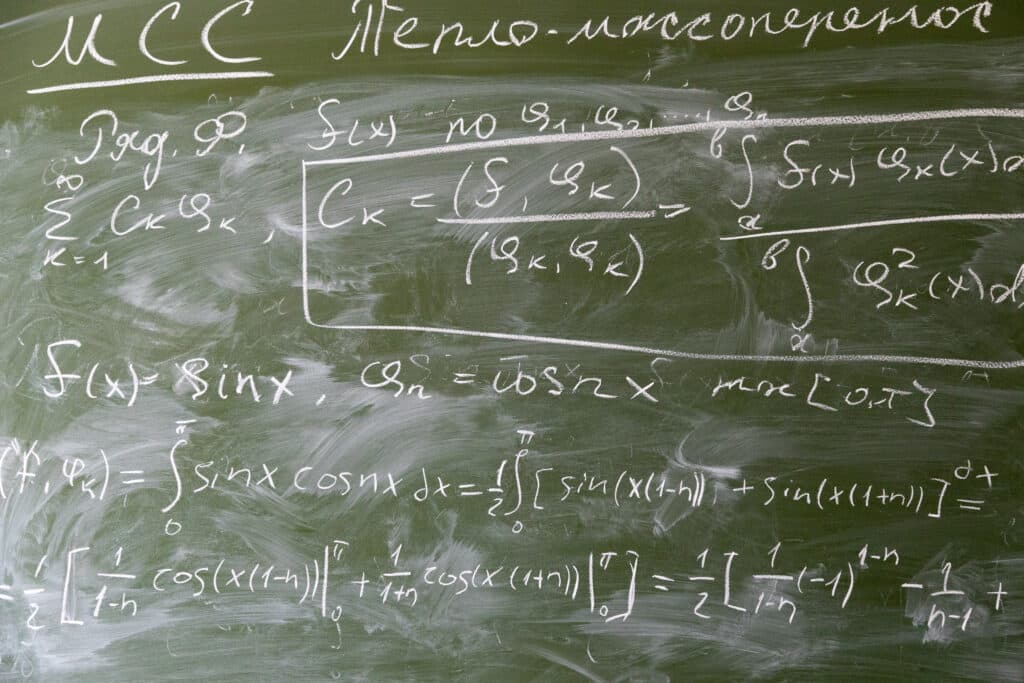 МСС Тепло-массоперенос
Ряд. Ф. f(x) по φ₁, φ₂, ..., φₙ
∞ ∑ k=1 Cₖ φₖ , Cₖ = (f, φₖ) / (φₖ, φₖ) = ∫ₐᵇ f(x) φₖ(x)d / ∫ₐᵇ φₖ²(x)d
f(x) = sinx, φₙ = cosnx на [0,π]
(f, φₖ) = ∫₀^π sinx cosnx dx = 1/2 ∫₀^π [sin(x(1-n)) + sin(x(1+n))] dx =
= 1/2 [ 1/(1-n) cos(x(1-n))|₀^π + 1/(1+n) cos(x(1+n))|₀^π ] = 1/2 [ 1/(1-n) (-1)^(1-n) - 1/(n-1) +